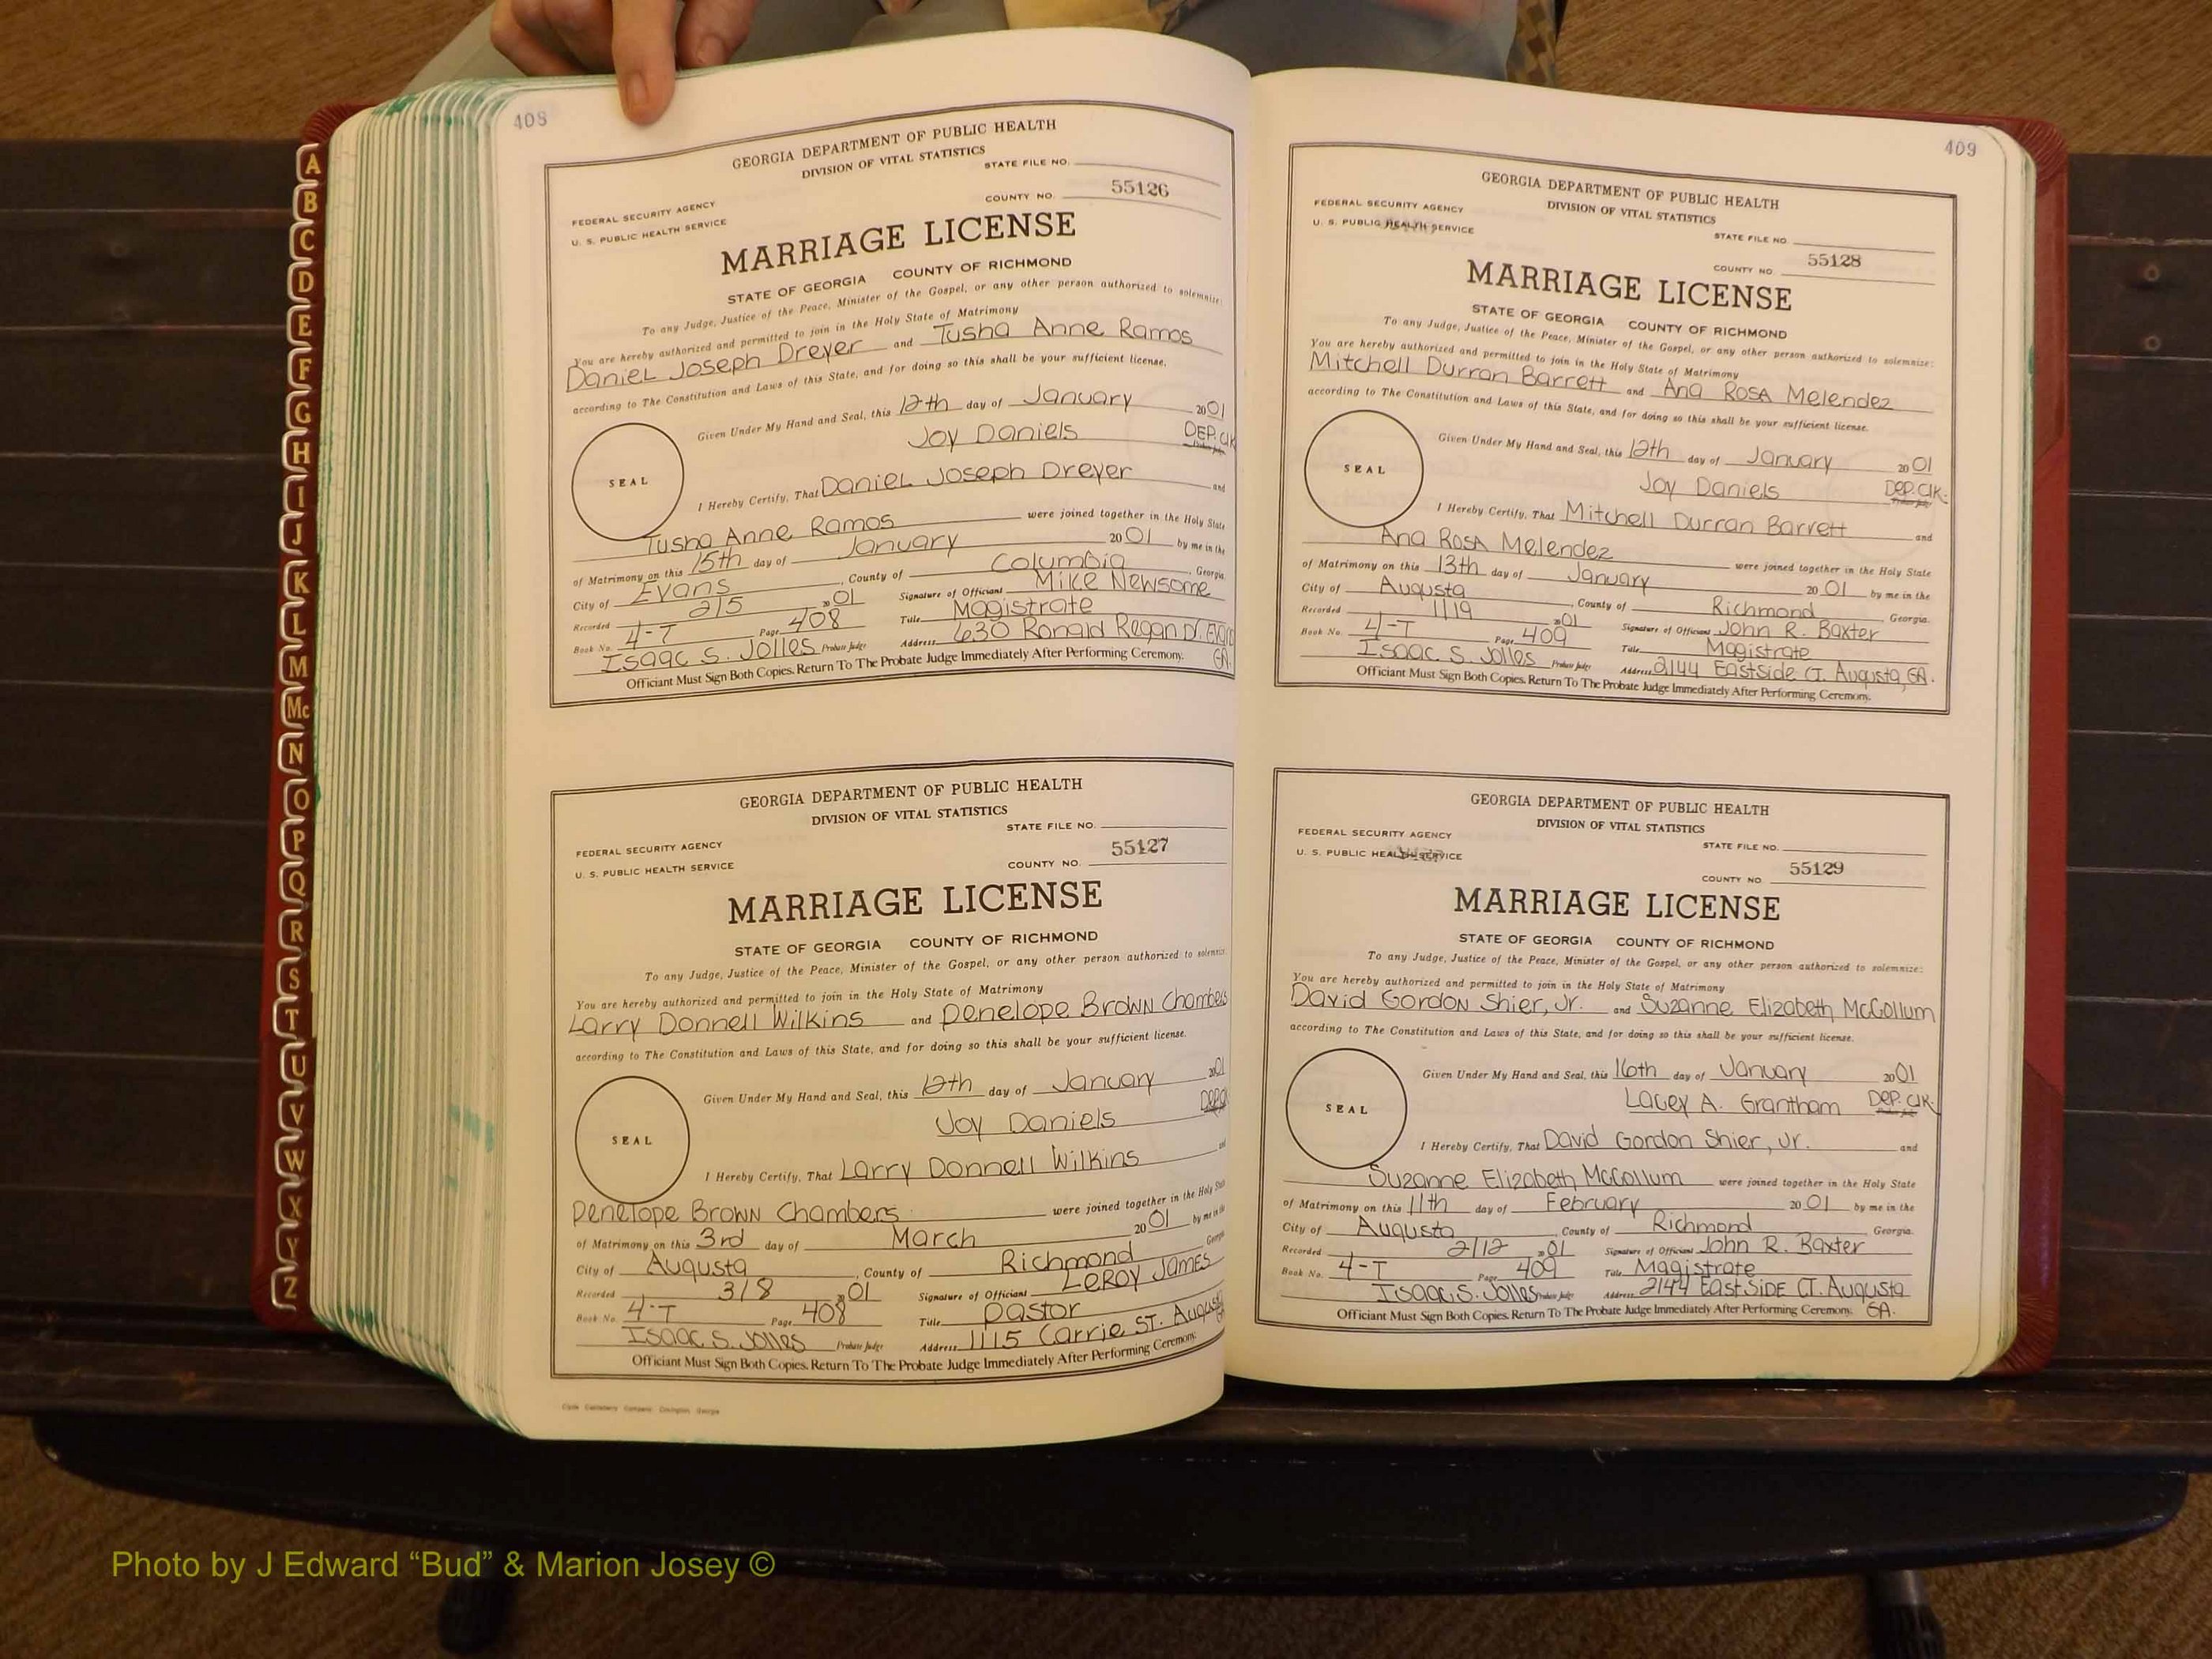 A
B
C
D
E
F
G
H
I
J
K
L
M
Mc
N
O
P
Q
R
S
T
U
V
W
X
Y
Z
408
GEORGIA DEPARTMENT OF PUBLIC HEALTH
DIVISION OF VITAL STATISTICS
STATE FILE NO.
FEDERAL SECURITY AGENCY
COUNTY NO. 55126
U. S. PUBLIC HEALTH SERVICE
MARRIAGE LICENSE
STATE OF GEORGIA COUNTY OF RICHMOND
To any Judge, Justice of the Peace, Minister of the Gospel, or any other person authorized to solemnize:
You are hereby authorized and permitted to join in the Holy State of Matrimony
Daniel Joseph Dreyer and Tusha Anne Ramos
according to The Constitution and Laws of this State, and for doing so this shall be your sufficient license.
Given Under My Hand and Seal, this 12th day of January 2001
Joy Daniels DEP. Clk
SEAL
I Hereby Certify, That Daniel Joseph Dreyer and
Tusha Anne Ramos were joined together in the Holy State
of Matrimony on this 15th day of January 2001 by me in the
City of Evans, County of Columbia, Georgia.
Recorded 2/5 2001 Signature of Officiant Mike Newsome
Book No. 4-T Page 408 Title Magistrate
Isaac S. Jolles Probate Judge Address 630 Ronald Regan Dr. Evans GA.
Officiant Must Sign Both Copies. Return To The Probate Judge Immediately After Performing Ceremony.
GEORGIA DEPARTMENT OF PUBLIC HEALTH
DIVISION OF VITAL STATISTICS
STATE FILE NO.
FEDERAL SECURITY AGENCY
COUNTY NO. 55127
U. S. PUBLIC HEALTH SERVICE
MARRIAGE LICENSE
STATE OF GEORGIA COUNTY OF RICHMOND
To any Judge, Justice of the Peace, Minister of the Gospel, or any other person authorized to solemnize:
You are hereby authorized and permitted to join in the Holy State of Matrimony
Larry Donnell Wilkins and Penelope Brown Chambers
according to The Constitution and Laws of this State, and for doing so this shall be your sufficient license.
Given Under My Hand and Seal, this 12th day of January 2001
Joy Daniels
SEAL
I Hereby Certify, That Larry Donnell Wilkins and
Penelope Brown Chambers were joined together in the Holy State
of Matrimony on this 3rd day of March 2001 by me in the
City of Augusta, County of Richmond Georgia
Recorded 3/8 2001 Signature of Officiant LeRoy James
Book No. 4-T Page 408 Title Pastor
Isaac S. Jolles Probate Judge Address 1115 Carrie St. Augusta
Officiant Must Sign Both Copies. Return To The Probate Judge Immediately After Performing Ceremony.
409
GEORGIA DEPARTMENT OF PUBLIC HEALTH
DIVISION OF VITAL STATISTICS
FEDERAL SECURITY AGENCY
U. S. PUBLIC HEALTH SERVICE
STATE FILE NO.
COUNTY NO 55128
MARRIAGE LICENSE
STATE OF GEORGIA COUNTY OF RICHMOND
To any Judge, Justice of the Peace, Minister of the Gospel, or any other person authorized to solemnize:
You are hereby authorized and permitted to join in the Holy State of Matrimony
Mitchell Durran Barrett and Ana Rosa Melendez
according to The Constitution and Laws of this State, and for doing so this shall be your sufficient license.
Given Under My Hand and Seal, this 12th day of January 2001
Joy Daniels DEP. Clk.
SEAL
I Hereby Certify, That Mitchell Durran Barrett and
Ana Rosa Melendez were joined together in the Holy State
of Matrimony on this 13th day of January 2001 by me in the
City of Augusta, County of Richmond Georgia.
Recorded 1/19 2001 Signature of Officiant John R. Baxter
Book No. 4-T Page 409 Title Magistrate
Isaac S. Jolles Probate Judge Address 2144 Eastside Ct. Augusta, GA.
Officiant Must Sign Both Copies. Return To The Probate Judge Immediately After Performing Ceremony.
GEORGIA DEPARTMENT OF PUBLIC HEALTH
DIVISION OF VITAL STATISTICS
FEDERAL SECURITY AGENCY
U. S. PUBLIC HEALTH SERVICE
STATE FILE NO.
COUNTY NO 55129
MARRIAGE LICENSE
STATE OF GEORGIA COUNTY OF RICHMOND
To any Judge, Justice of the Peace, Minister of the Gospel, or any other person authorized to solemnize:
You are hereby authorized and permitted to join in the Holy State of Matrimony
David Gordon Shier, Jr. and Suzanne Elizabeth McCollum
according to The Constitution and Laws of this State, and for doing so this shall be your sufficient license.
Given Under My Hand and Seal, this 16th day of January 2001
Lacey A. Grantham DEP. Clk.
SEAL
I Hereby Certify, That David Gordon Shier, Jr. and
Suzanne Elizabeth McCollum were joined together in the Holy State
of Matrimony on this 11th day of February 2001 by me in the
City of Augusta, County of Richmond Georgia.
Recorded 2/12 2001 Signature of Officiant John R. Baxter
Book No. 4-T Page 409 Title Magistrate
Isaac S. Jolles Probate Judge Address 2144 Eastside Ct. Augusta
Officiant Must Sign Both Copies. Return To The Probate Judge Immediately After Performing Ceremony. GA.
Photo by J Edward “Bud” & Marion Josey ©